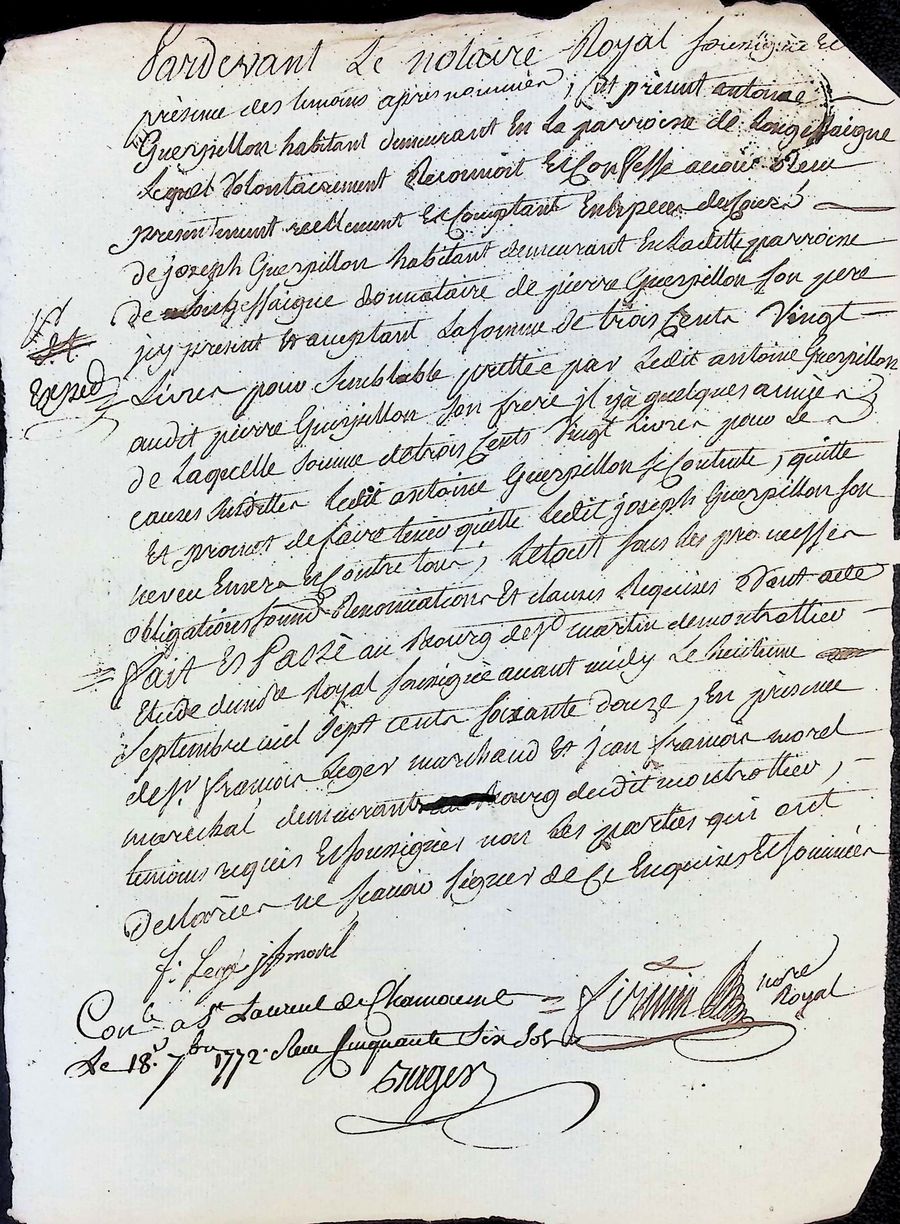 Pardevant Le notaire Royal soussigné Et
présence des temoins apres nommés, fut présent antoine
Guerpillon habitant demeurant En La parroisse de Longessaigne
Lequel Volontairement Reconnoit Et Confesse avoir Reçu
presentement reellement Et Comptant En Especes de Cours
de joseph Guerpillon habitant demeurant En Laditte parroisse
de Longessaigne donnataire de pierre Guerpillon son pere
jcy present Et acceptant La somme de trois Cents Vingt
Expéd
Livres pour Semblable prettée par Ledit antoine Guerpillon
audit pierre Guerpillon son frere il y a quelques années
de Laquelle somme de trois Cents Vingt Livres pour Les
causes Susdittes Ledit antoine Guerpillon se Contente, quitte
Et promet de faire tenir quitte Ledit joseph Guerpillon son
neveu Envers Et Contre tous, Le tout sous les promesses
obligations soumons Renonciations Et clauses Requises Dont acte
fait Et Passé au Bourg de St martin de montrottier
Etude dudt notre Royal soussigné avant midy Le huitieme
Septembre mil Sept cents soixante douze, En présence
de sr françois Leger marchand Et jean françois morel
marechal demeurants bourg dudit montrottier,
temoins requis Et soussignés non Les parties qui ont
Declarées ne scavoir signer de Ce Enquises Et sommées
f. Leger jf morel
Conlé a St Laurent de Chamousset
nore Royal
Le 18e 7bre 1772. Reçu Cinquante Six Sols